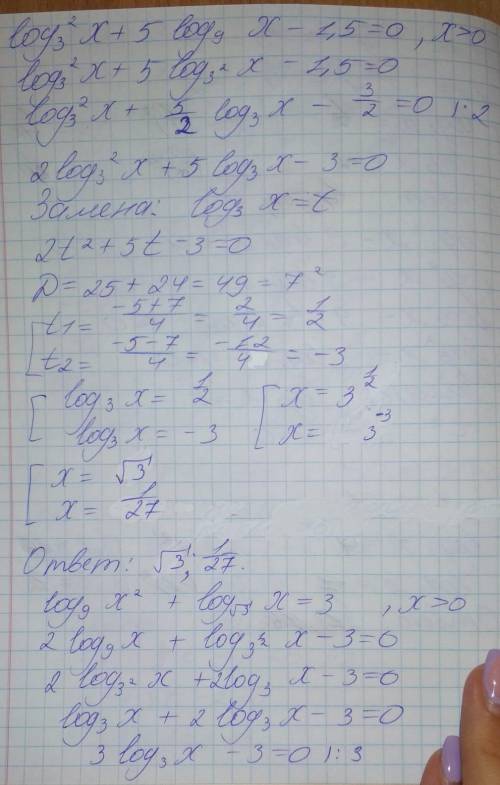 log₃²x + 5 log₉ x − 1,5 = 0 , x>0
log₃²x + 5 log₃² x − 1,5 = 0
log₃²x + 5/2 log₃x − 3/2 = 0 |·2
2log₃²x + 5 log₃x − 3 = 0
Замена: log₃ x = t
2t² + 5t − 3 = 0
D = 25 + 24 = 49 = 7²
t1 = (−5+7)/4 = 2/4 = 1/2
t2 = (−5−7)/4 = −12/4 = −3
[ log₃ x = 1/2 [ x = 3^(1/2)
log₃ x = −3 x = 3^(−3)
[ x = √3
x = 1/27
Ответ: √3; 1/27.
log₉ x² + log_√3 x = 3 , x>0
2 log₉x + log_3^(1/2) x − 3 = 0
2 log₃² x + 2log₃ x − 3 = 0
log₃ x + 2 log₃x − 3 = 0
3 log₃x − 3 = 0 |:3